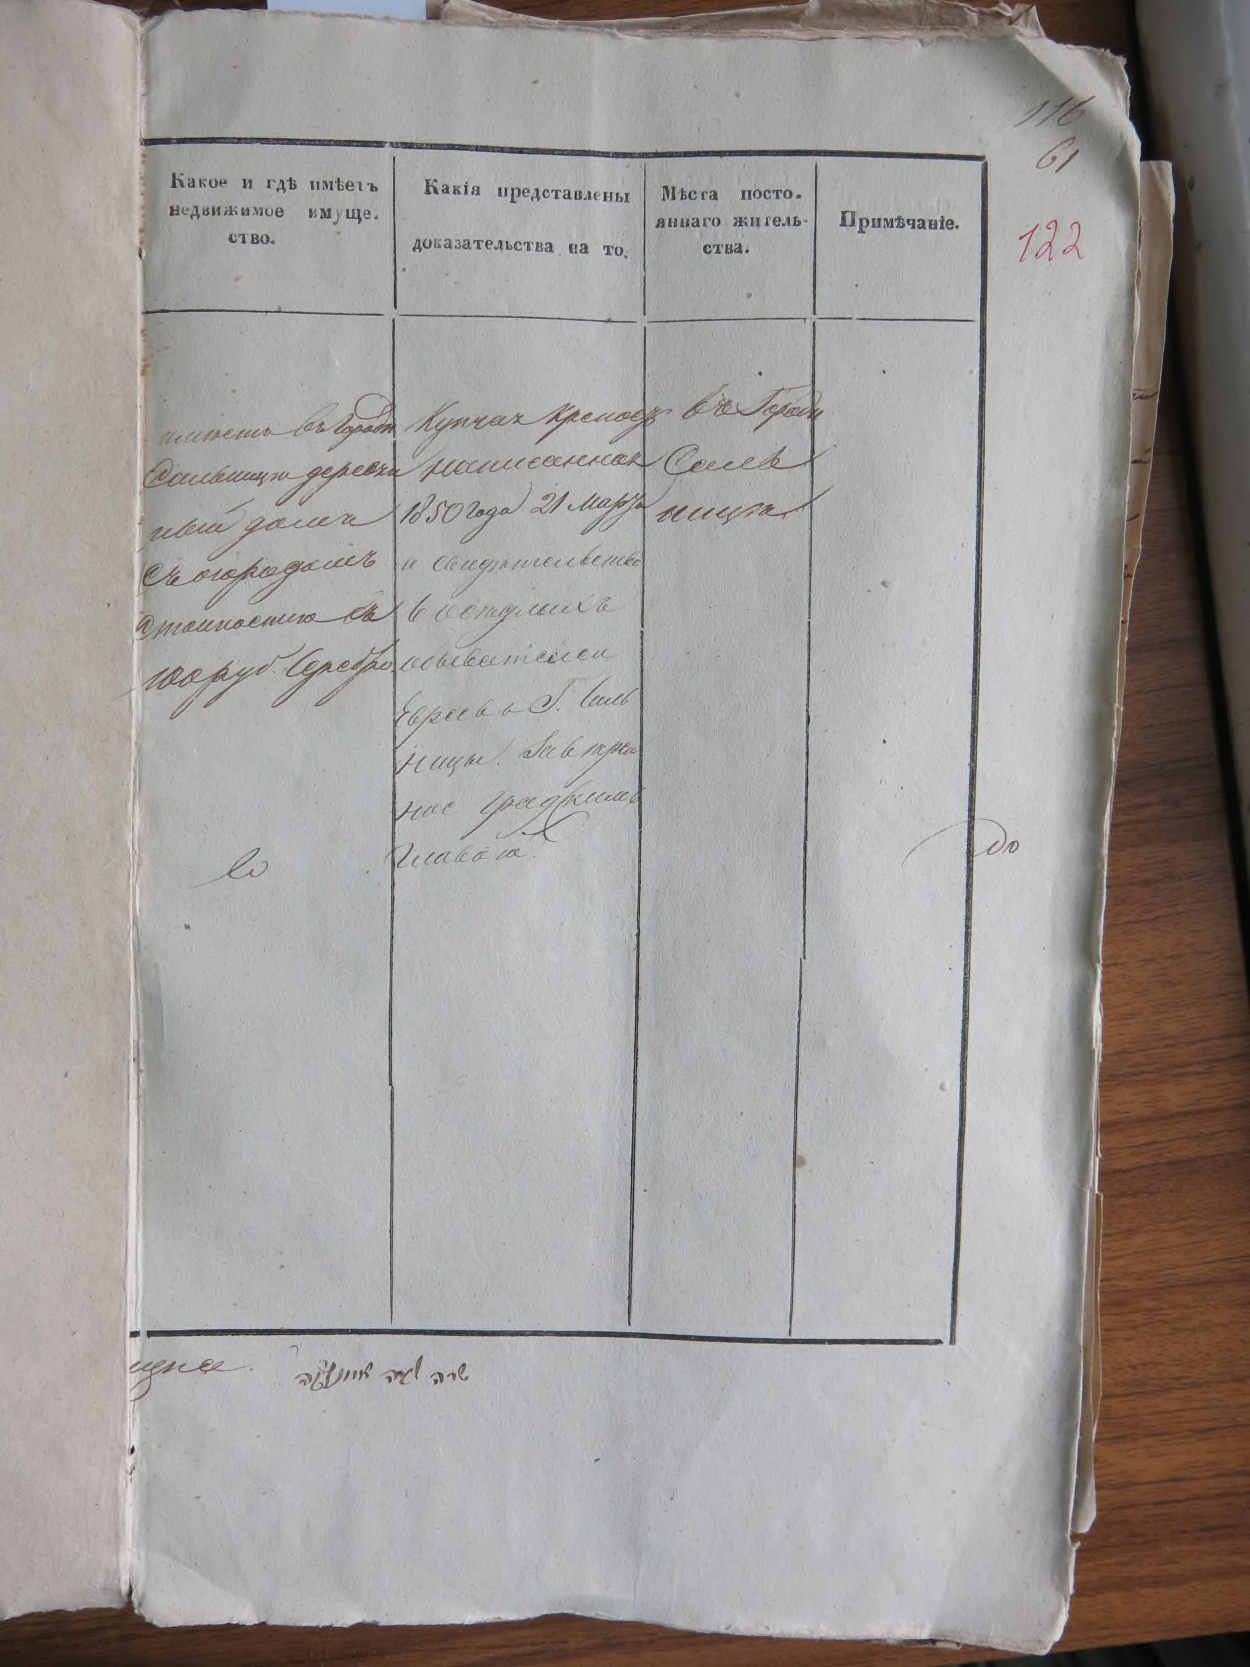 116
61
122
Какое и гдѣ имѣетъ
недвижимое имуще-
ство.
Какія представлены
доказательства на то.
Мѣста посто-
яннаго житель-
ства.
Примѣчаніе.
имѣетъ въ городѣ
Сальницѣ деревян
ный домъ
съ огородомъ
стоимостію въ
100 руб. Серебр.
Купчая крепость
написанная
1850 года 21 марта
и свидѣтельство
6 оседлыхъ
обывателей
Евреевъ Г. Саль
ницы
градскимъ
Главою.
въ Городѣ
Саль
ницѣ
до
שרה לאה